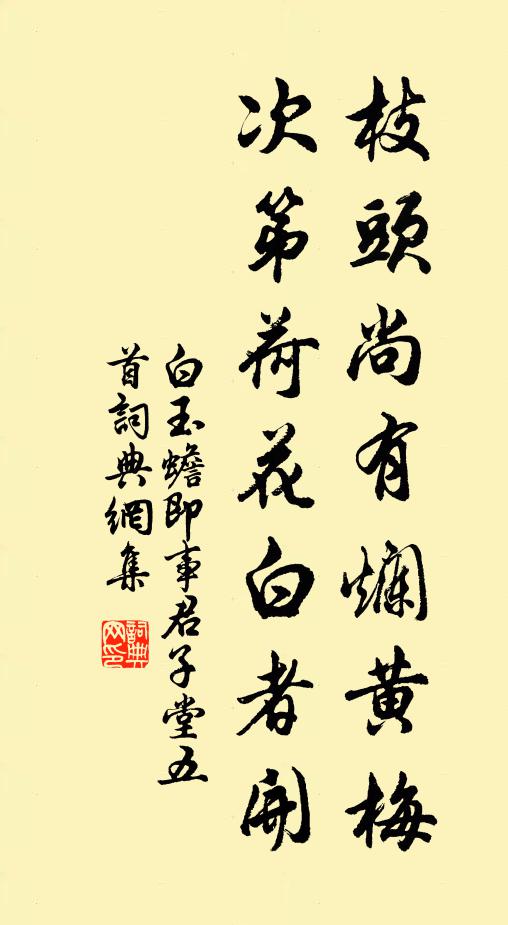 枝頭尚有爛黃梅
次第荷花白者開
白玉蟾即事君子堂五
首詞典網集
詞典
网印